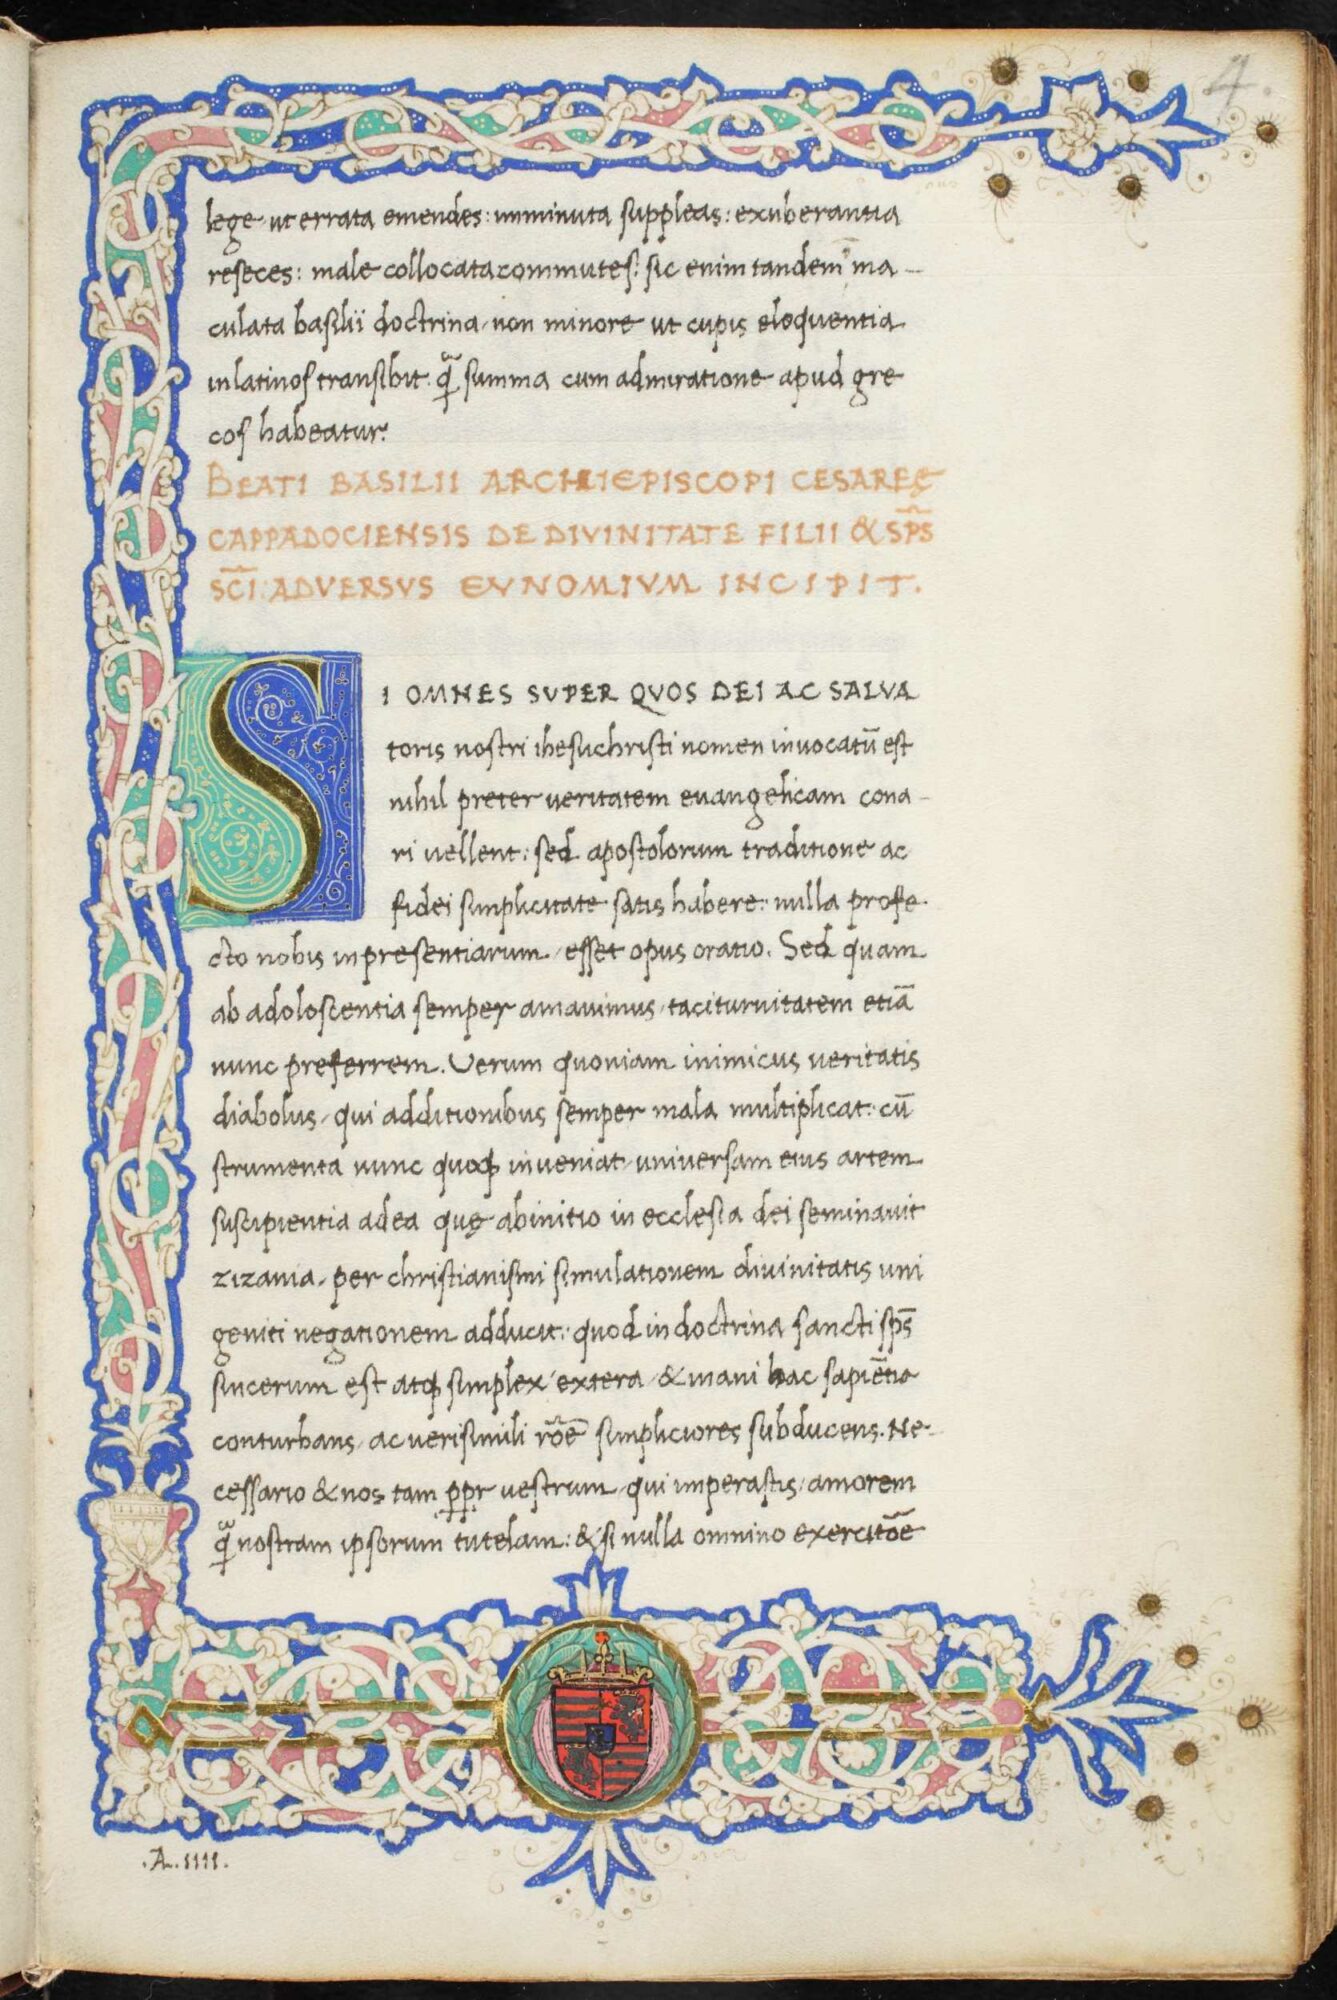 4.
lege ut errata emendes: imminuta suppleas: exuberantia
reseces: male collocata commutes: sic enim tandem īma-
culata basilii doctrina, non minore ut cupis eloquentia
in latinos transibit. qᷓ summa cum admiratione apud gre
cos habeatur.
BEATI BASILII ARCHIEPISCOPI CESAREĘ
CAPPADOCIENSIS DE DIVINITATE FILII & SP̄S
SC̄I ADVERSVS EVNOMIVM INCIPIT.
SI OMNES SVPER QVOS DEI AC SALVA
toris nostri ihesuchristi nomen invocatū est
nihil preter veritatem euangelicam cona-
ri vellent: sed apostolorum traditione ac
fidei simplicitate satis habere: nulla profe
cto nobis in presentiarum, esset opus oratio. Sed quam
ab adoloscentia semper amavimus, taciturnitatem etiā
nunc preferrem. Verum quoniam inimicus veritatis
diabolus, qui additionibus semper mala multiplicat: cū
strumenta nunc quoqꝫ inveniat, universam eius artem
suscipientia ad ea quę ab initio in ecclesia dei seminavit
zizania, per christianismi simulationem divinitatis uni
geniti negationem adducit: quod in doctrina sancti sp̄s
sincerum est atqꝫ simplex, extera, & inani hac sapiētia
conturbans, ac verisimili rōē simpliciores subducens. Ne-
cessario & nos tam ꝓpꝑ vestrum, qui imperastis, amorem
qᷓ nostram ipsorum tutelam: & si nulla omnino exercitōē
.A. IIII.